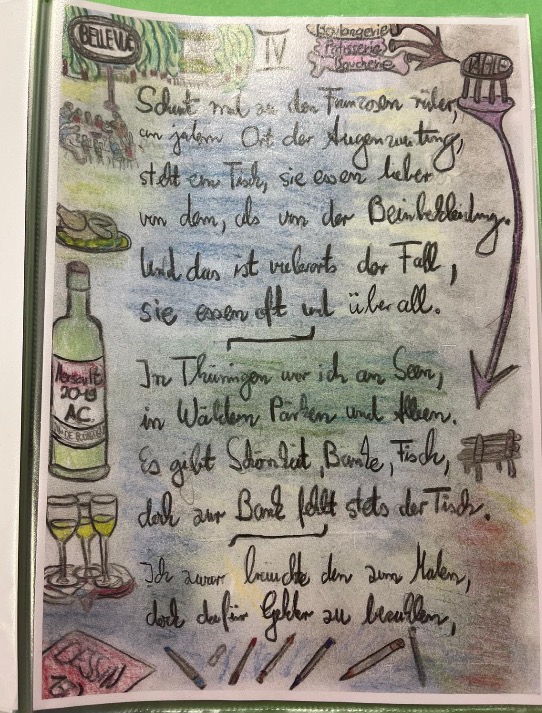 BELLEVUE
IV
Boulangerie
Patisserie
Boucherie
Schaut mal zu den Franzosen rüber,
an jedem Ort der Augenweitung,
steht ein Tisch, sie essen lieber
von dem, als von der Beinbekleidung.
Und das ist vielerorts der Fall,
sie essen oft und überall.
In Thüringen war ich an Seen,
in Wäldern Parken und Alleen.
Es gibt Schönheit, Bänke, Fisch,
doch zur Bank fehlt stets der Tisch.
Ich zwar bräuchte den zum Malen,
doch dafür Gelder zu bezahlen,
Mersault
20-13
A.C.
DESSIN